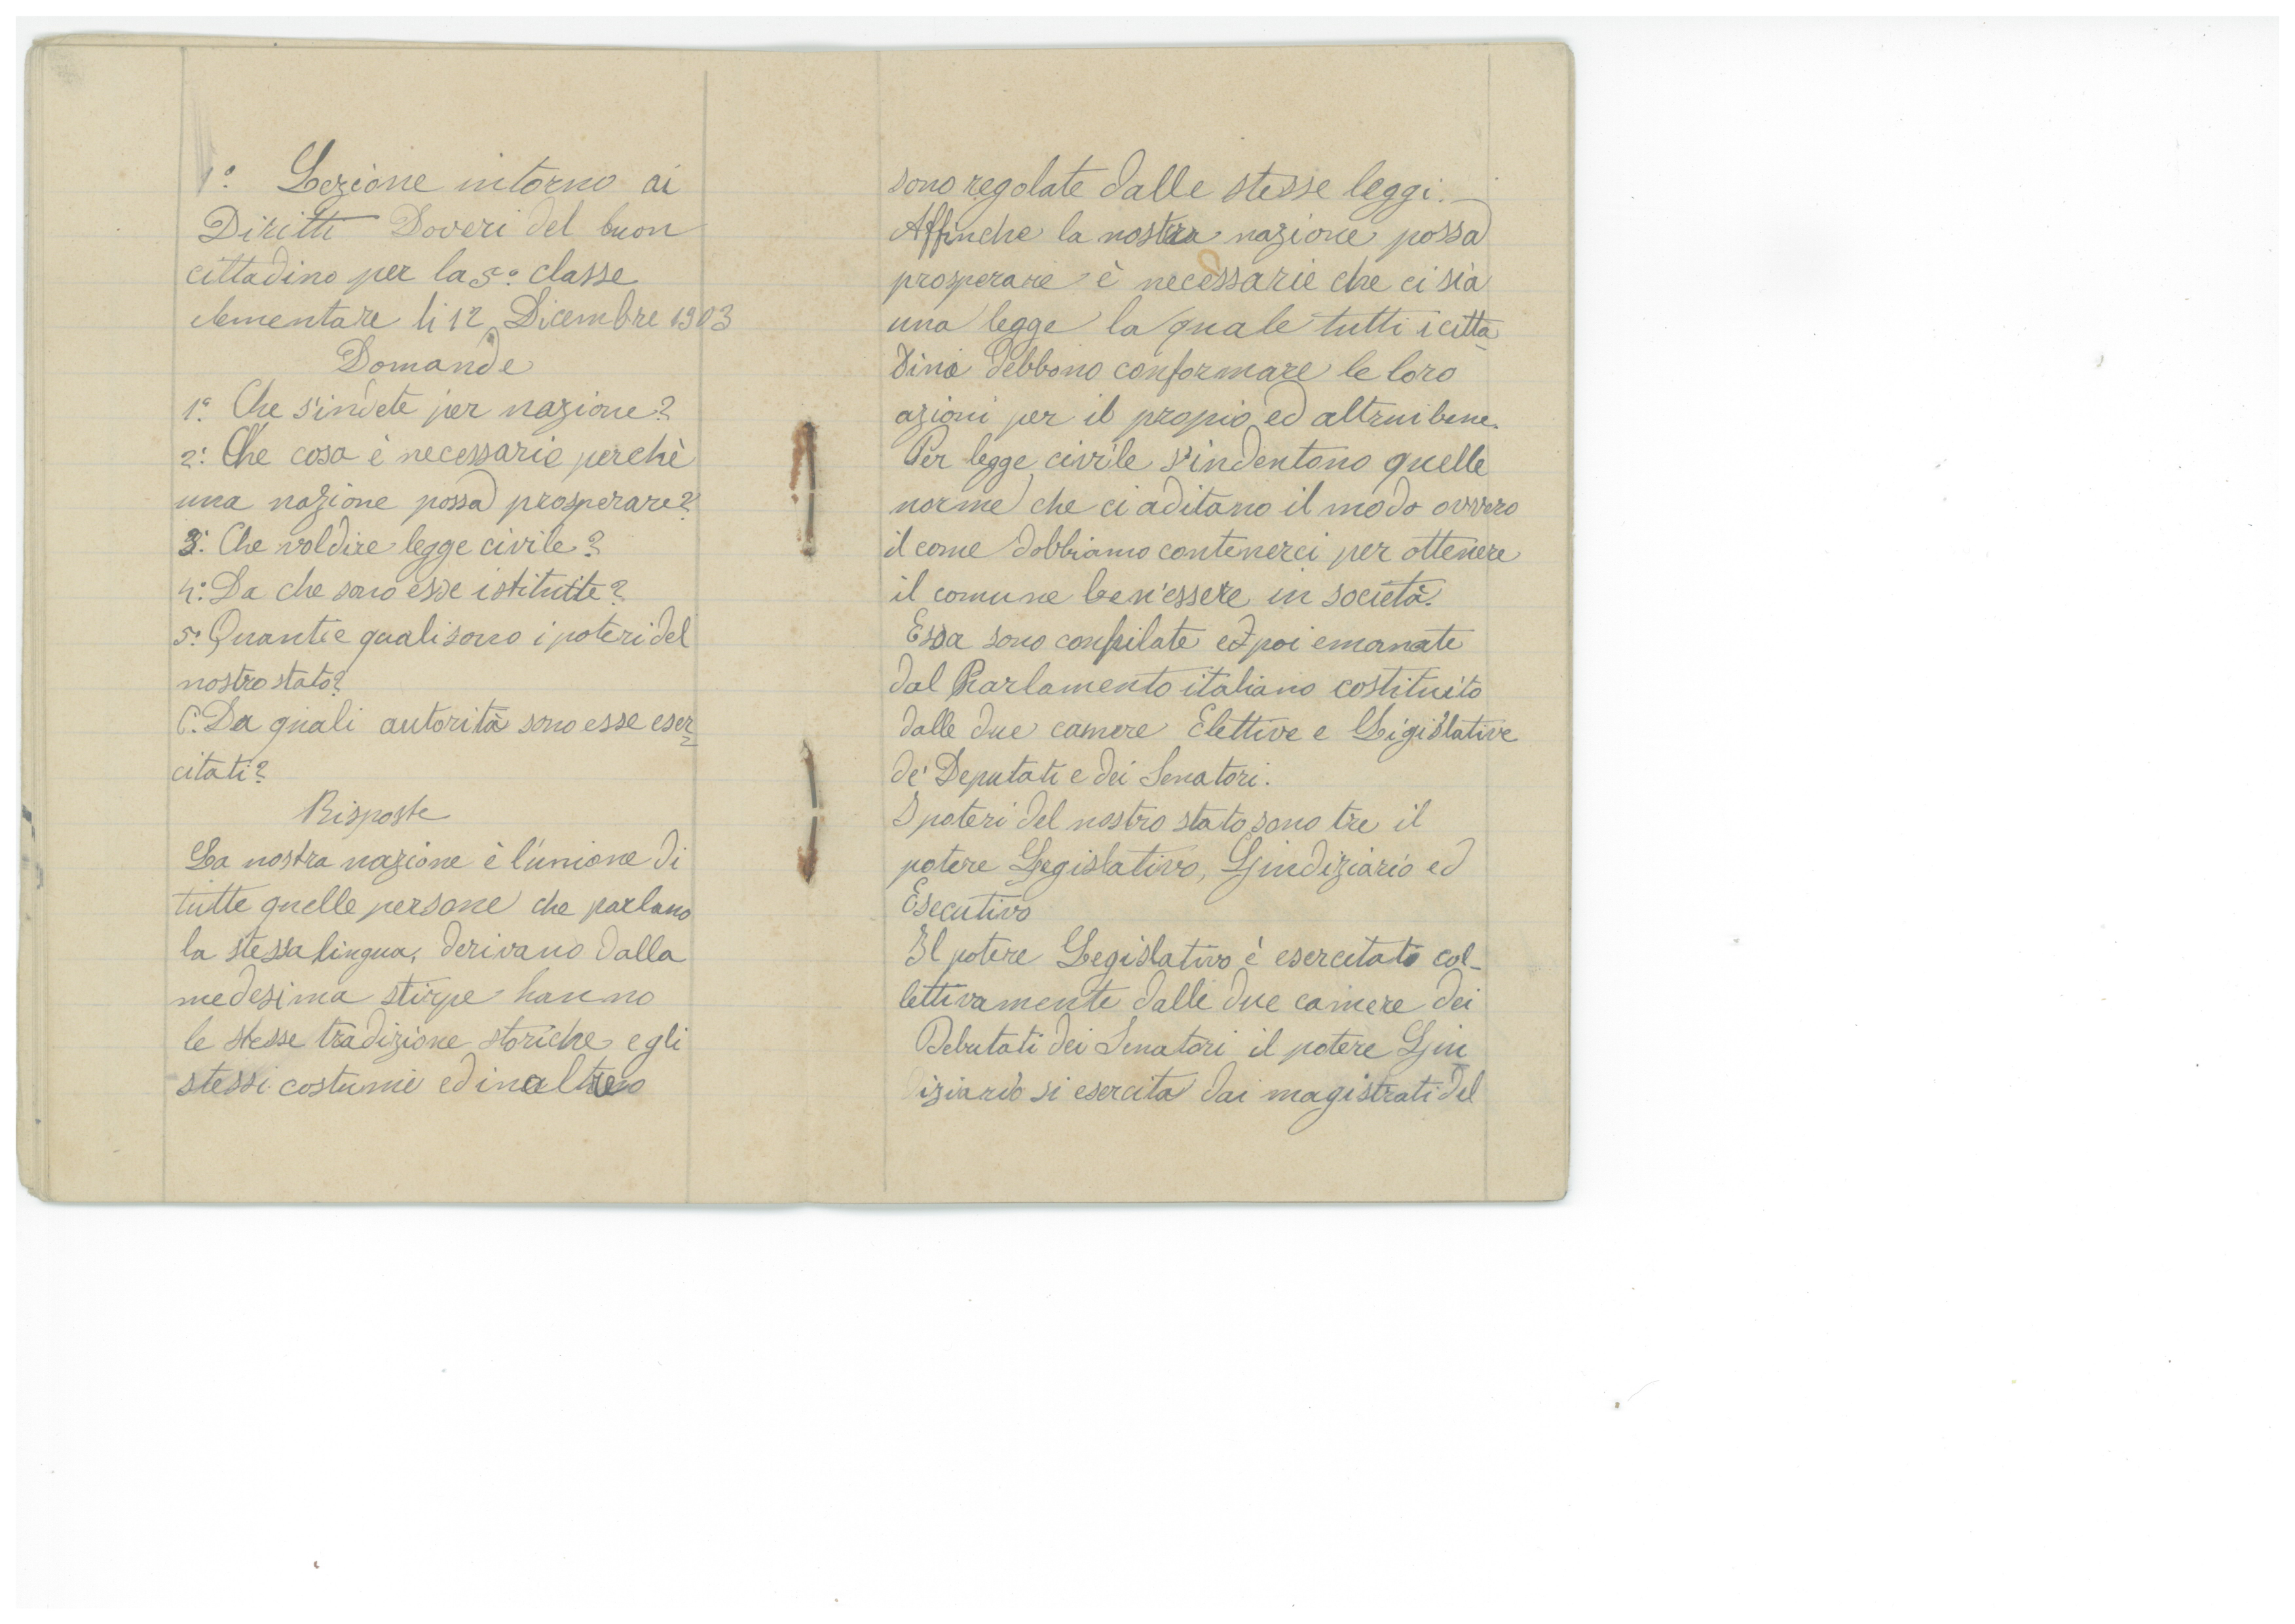 1º. Lezione intorno ai
Diritti Doveri del buon
cittadino per la 5º classe
elementare li 12 Dicembre 1903
Domande
1º. Che s'indete per nazione?
2º. Che cosa è necessario perchè
una nazione possa prosperare?
3º. Che voldire legge civile?
4º. Da che sono esse istituite?
5º. Quanti e quali sono i poteri del
nostro stato?
6º. Da quali autorità sono esse eser=
citati?
Risposte
La nostra nazione è l'unione di
tutte quelle persone che parlano
la stessa lingua, derivano dalla
medesima stirpe hanno
le stesse tradizione storiche e gli
stessi costumi ed inaltreno
sono regolate dalle stesse leggi.—
Affinche la nostra nazione possa
prosperare è necessarie che ci sia
una legge la quale tutti i citta=
dini debbono conformare le loro
azioni per il propio ed altrui bene.
Per legge civile s'indentono quelle
norme che ci aditano il modo ovvero
il come dobbiamo contenerci per ottenere
il comune ben'essere in società.
Essa sono compilate ed poi emanate
dal Parlamento italiano costituito
dalle due camere Elettive e Ligislative
de' Deputati e dei Senatori.
I poteri del nostro stato sono tre il
potere Legislativo, Giudiziario ed
Esecutivo
Il potere Legislativo è esercitato col-
lettivamente dalle due camere dei
Debutati dei Senatori il potere Giu=
iziario si esercita dai magistrati del